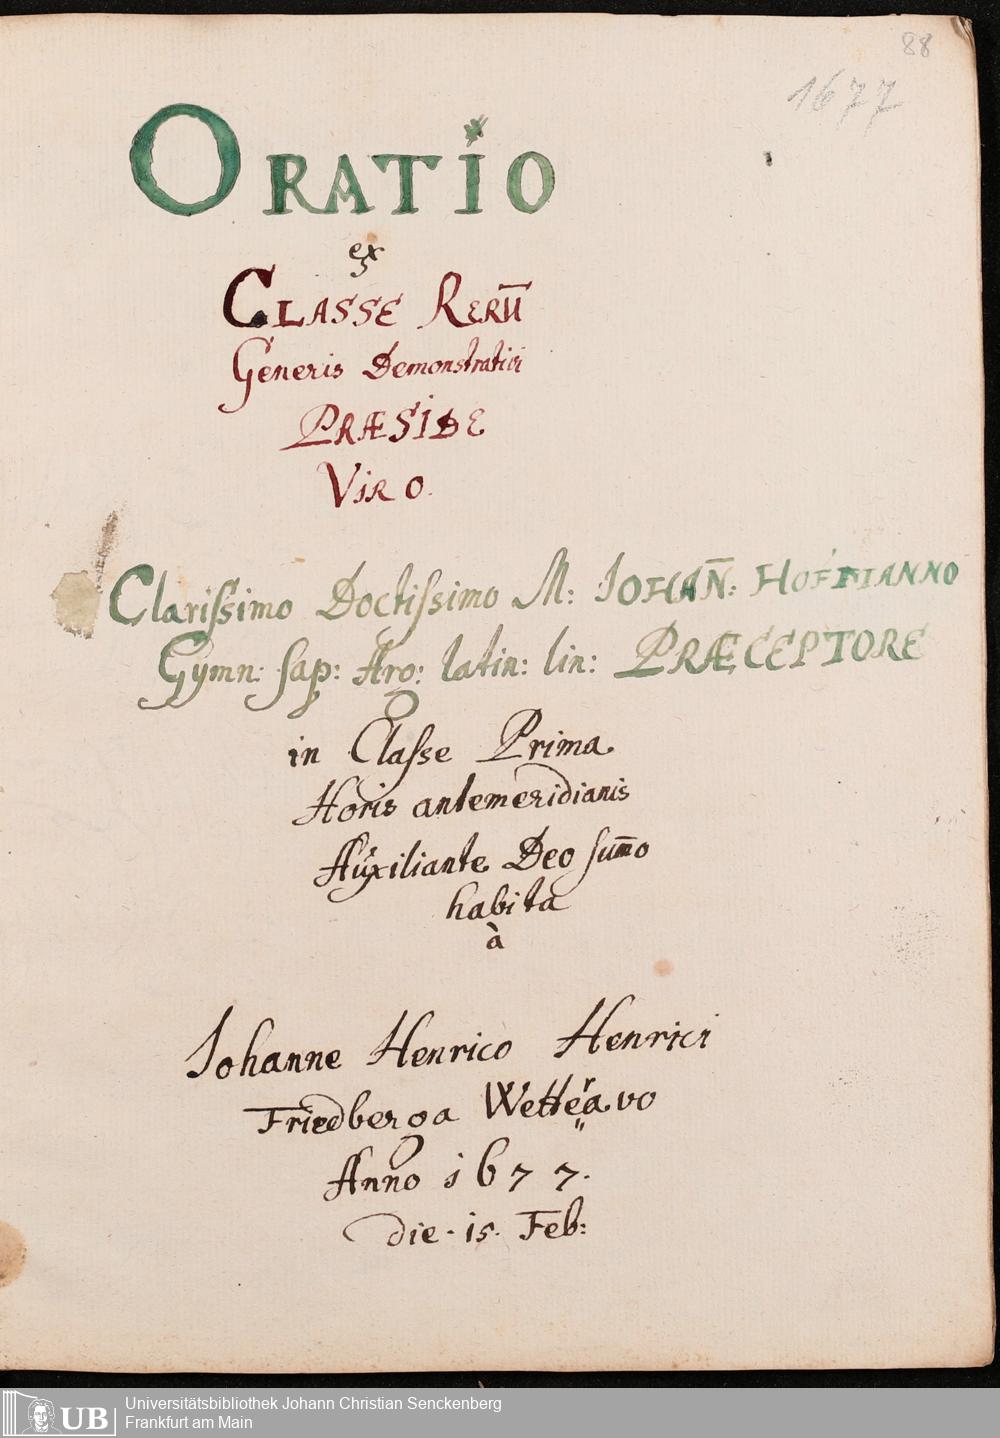 88
1677
ORATIO
ex
CLASSE RERŪ
Generis Demonstrativi
PRÆSIDE
VIRO.
Clarissimo Doctissimo M: IOHAN̄: HOFFMANNO
Gymn: sap: Arg: latin: lin: PRÆCEPTORE
in Classe Prima
Horis antemeridianis
Auxiliante Deo sum̄o
habita
à
Iohanne Henrico Henrici
Friedberga Wetteravo
Anno 1677.
die. 15. Feb:
UB
Universitätsbibliothek Johann Christian Senckenberg
Frankfurt am Main